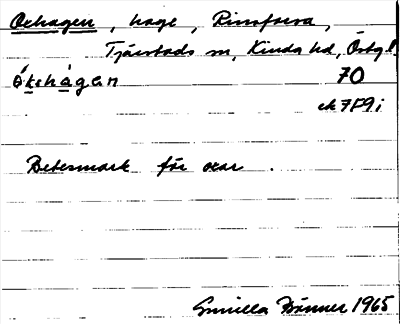 Oxhagen, hage, Rimforsa,
Tjärstads sn, Kinda hd, Östg l.
ókshàgen 70
ek 7F9i
Betesmark för oxar.
Gunilla Brånner 1965